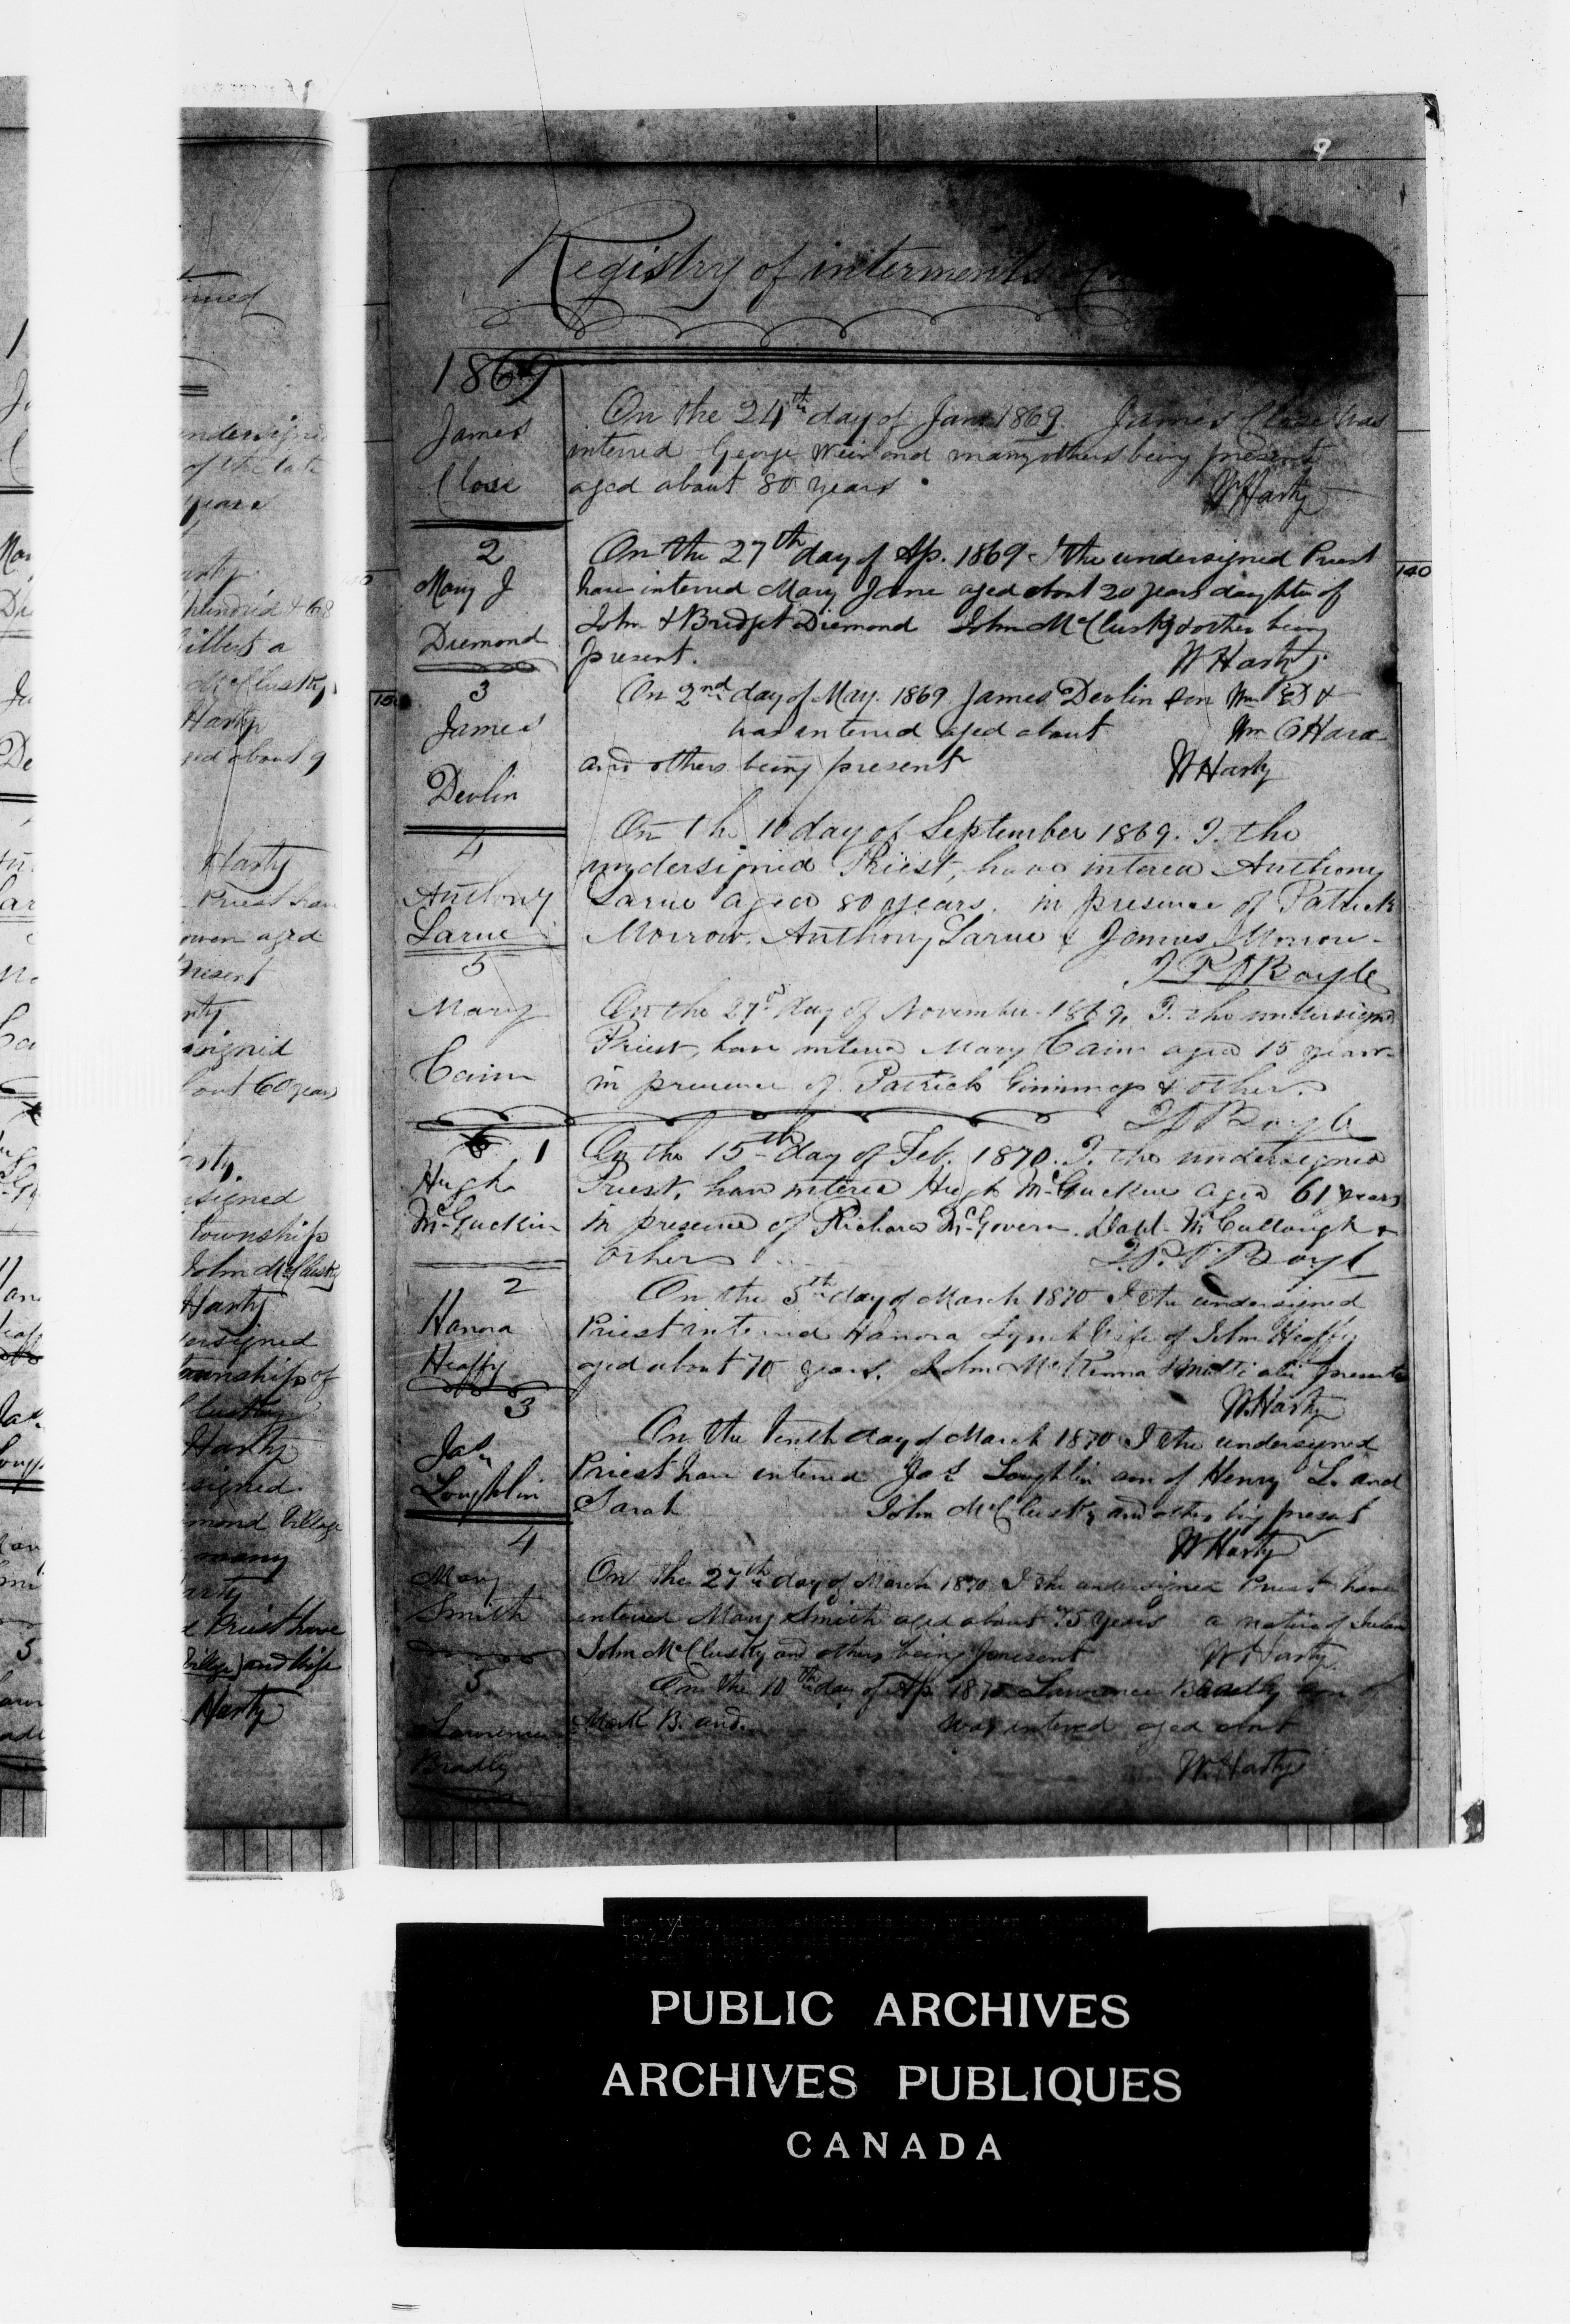 9
Registry of interments
1869
James
Close
On the 24th day of Jan 1869. James Close was
interred George Weir and many others being present
aged about 80 years.
W Harty
2
Mary J
Diemond
On the 27th day of Ap. 1869 I the undersigned Priest
have interred Mary Jane aged about 20 years daughter of
John & Bridget Diemond John McClusky & other being
present.
W Harty
140
15
3
James
Devlin
On 2nd day of May. 1869 James Devlin son Wm D &
was interred aged about Wm O Hara
and others being present
W Harty
4
Anthony
Larue
On th 10 day of September 1869. I. the
undersigned Priest, have intered Anthony
Larue aged 80 years. in presence of Patrick
Morrow. Anthony Larue & James Morrow-
J P Boyle
5
Mary
Cain
On the 27 day of November 1869, I. the undersigned
Priest, have intered Mary Cain aged 15 years
in presence of Patrick & others
Boyle
1
Hugh
McGuckin
On the 15th day of Feb. 1870. I. the undersigned
Priest, have intered Hugh McGuckin aged 61 years
in presence of Richard McGovern. McCullough &
others
Boyle
2
Hanora
Heaffy
On the 5th day of March 1870 I the undersigned
Priest interred Hanora Lynch Wife of John Heaffy
aged about 70 years. John McKenna & multi alii presente
W. Harty
3
Jas
Loughlin
On the tenth day of March 1870 I the undersigned
Priest have interred Jas Loughlin son of Henry L. and
Sarah John McClusky and others being present
W Harty
4
Mary
Smith
On the 27th day of March 1870 I the undersigned Priest have
interred Mary Smith aged about 75 years a native of Ireland
John McClusky and others being present W Harty
5
Lawrence
Bradley
On the 10th day of Ap 1870 Lawrence Bradley son of
Mark B. and was interred aged about
W. Harty
PUBLIC ARCHIVES
ARCHIVES PUBLIQUES
CANADA